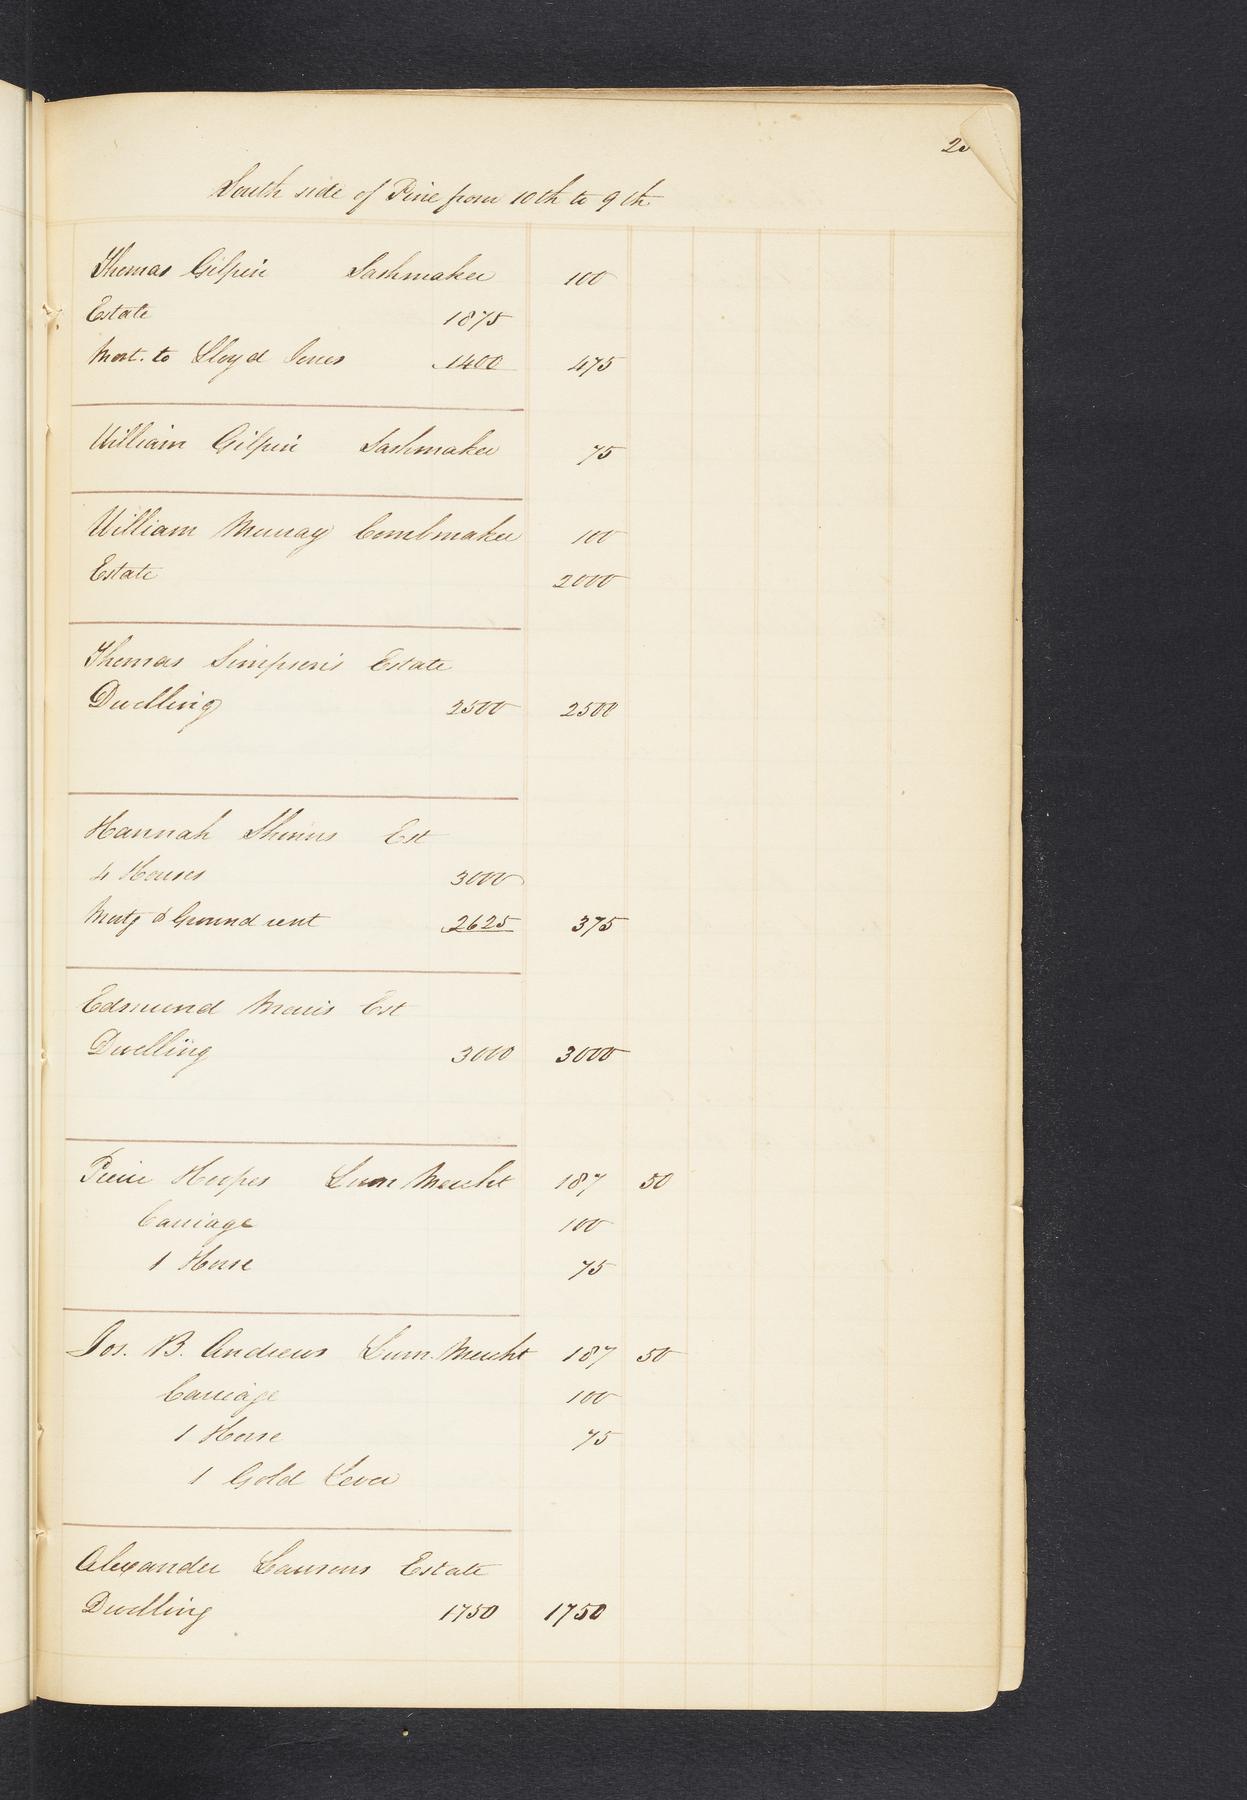 South side of Pine from 10th to 9th
Thomas Gilpin Sashmaker 100
Estate 1875
Mort. to Lloyd Jones 1400 475
William Gilpin Sashmaker 75
William Murray Combmaker 100
Estate 2000
Thomas Simpson's Estate
Dwelling 2500 2500
Hannah Est
4 Houses 3000
Mortg & Ground rent 2625 375
Edmund Maris Est
Dwelling 3000 3000
Hoopes Lum Mercht 187 50
Carriage 100
1 Horse 75
Jos. B. Andrews Lum. Mercht 187 50
Carriage 100
1 Horse 75
1 Gold Lever
Alexander Estate
Dwelling 1750 1750